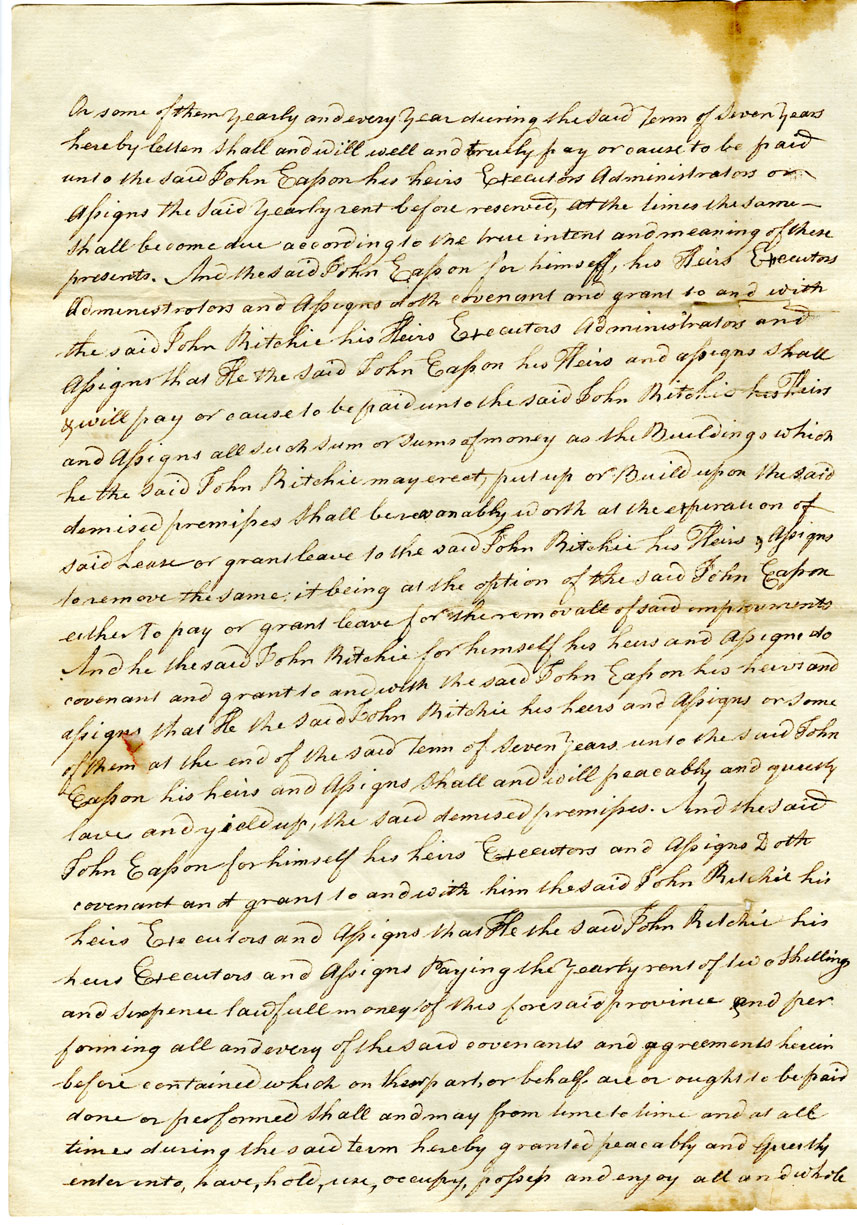 Or some of them yearly and every Year during the said Term of Seven Years
hereby letten shall and will well and truely pay or cause to be paid
unto the said John Eaſson his heirs Executors Administrators or
Aſsigns the said yearly rent before reserved, at the times the same
shall become due according to the true intent and meaning of these
presents. And the said John Eaſson for himself, his Heirs Executors
Administrators and Aſsigns doth covenant and grant to and with
the said John Ritchie his Heirs Executors Administrators and
Aſsigns that He the said John Eaſson his Heirs and aſsigns shall
& will pay or cause to be paid unto the said John Ritchie his Heirs
and Aſsigns all such sum or sums of money as the Buildings which
he the said John Ritchie may erect, put up or Build upon the said
demised premiſses shall be reasonably worth at the experation of
said Lease or grant leave to the said John Ritchie his Heirs & Aſsigns
to remove the same; it being at the option of the said John Eaſson
either to pay or grant leave for the removall of said improvments
And he the said John Ritchie for himself his heirs and Aſsigns do
covenant and grant to and with the said John Eaſson his heirs and
aſsigns that He the said John Ritchie his heirs and Aſsigns or some
of them at the end of the said Term of Seven Years unto the said John
Eaſson his heirs and Aſsigns shall and will peacably and quietly
lave and yield up, the said demised premiſses. And the said
John Eaſson for himself his heirs Executors and Aſsigns Doth
covenant and grant to and with him the said John Ritchie his
heirs Executors and Aſsigns that He the said John Ritchie his
heirs Executors and Aſsigns Paying the Yearly rent of two Shillings
and sixpence lawfull money of this foresaid province and per
forming all and every of the said covenants and agreements herein
before contained which on their part, or behalf, are or ought to be paid
done or performed shall and may from time to time and at all
times during the said term hereby granted peacably and Quietly
enter into, have, hold, use, occupy, poſseſs and enjoy all and whole